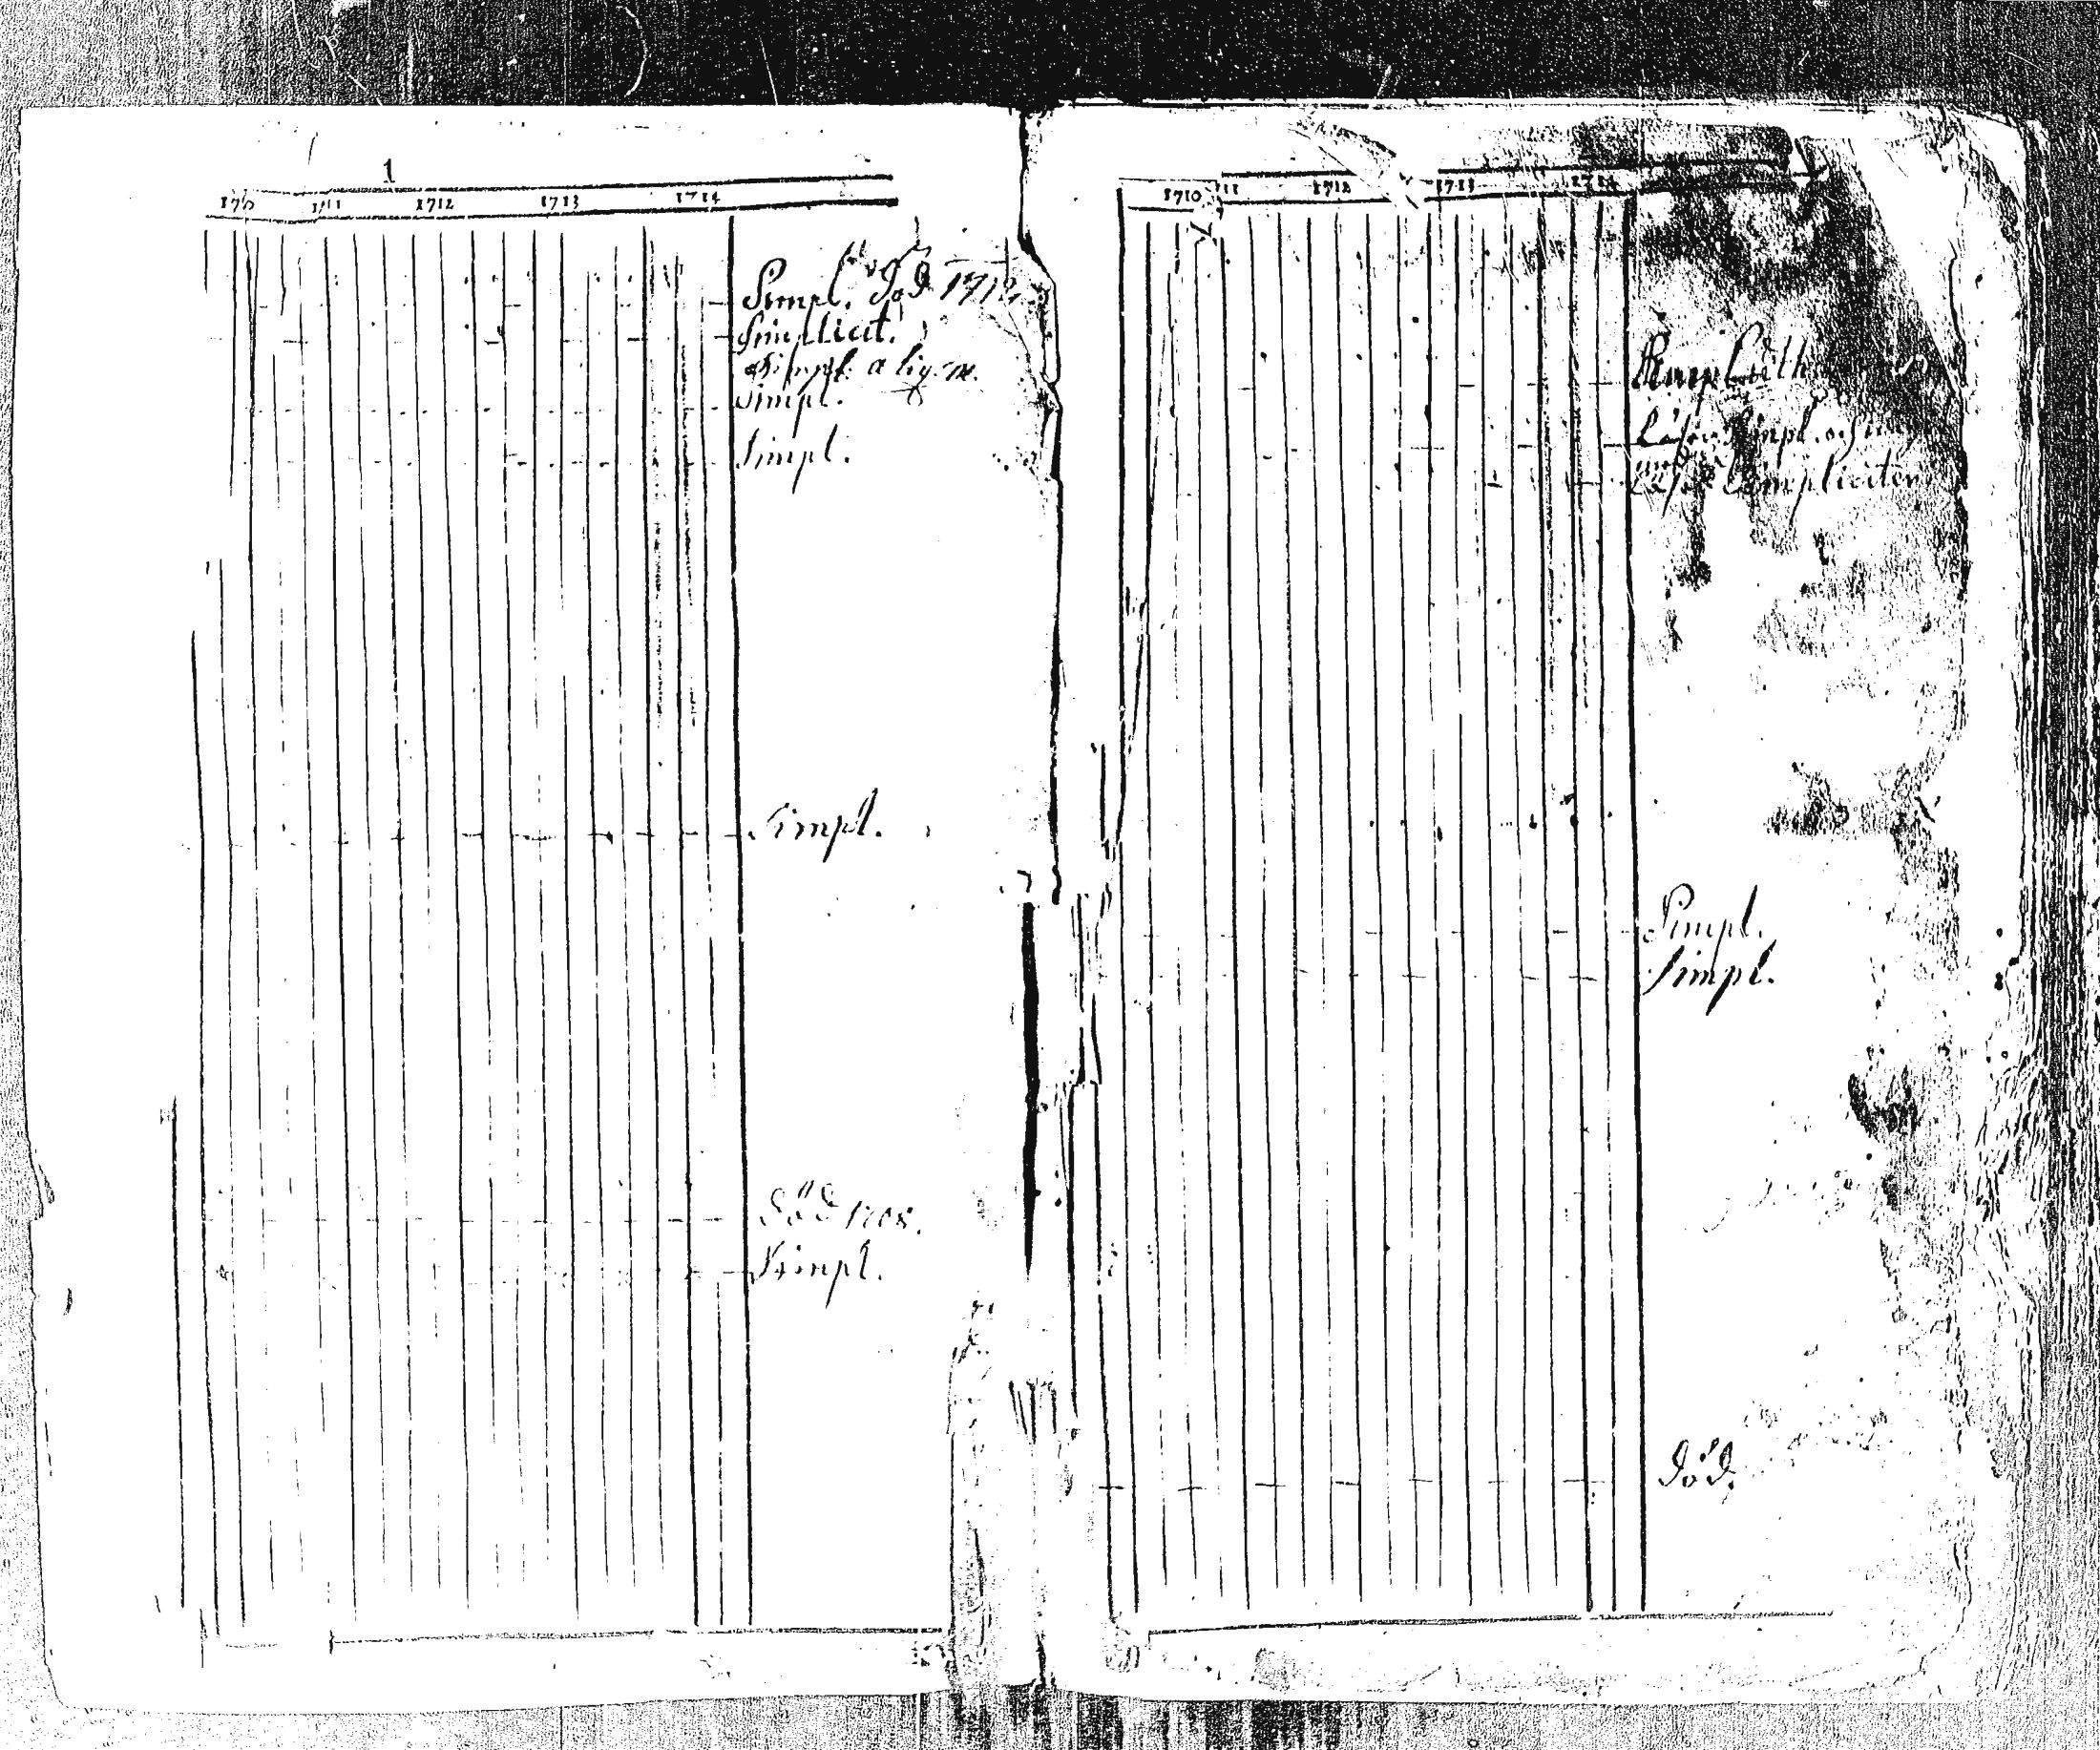 1
1710 1711 1712 1713 1714
Simpl. död 1712
simplicit.
simpl. a lig. m.
simpl.
simpl.
simpl.
död 1708.
simpl.
1710 11 1712 1713 1714
Läser Simpl. och
läser Simpliciter
Simpl.
simpl.
död.